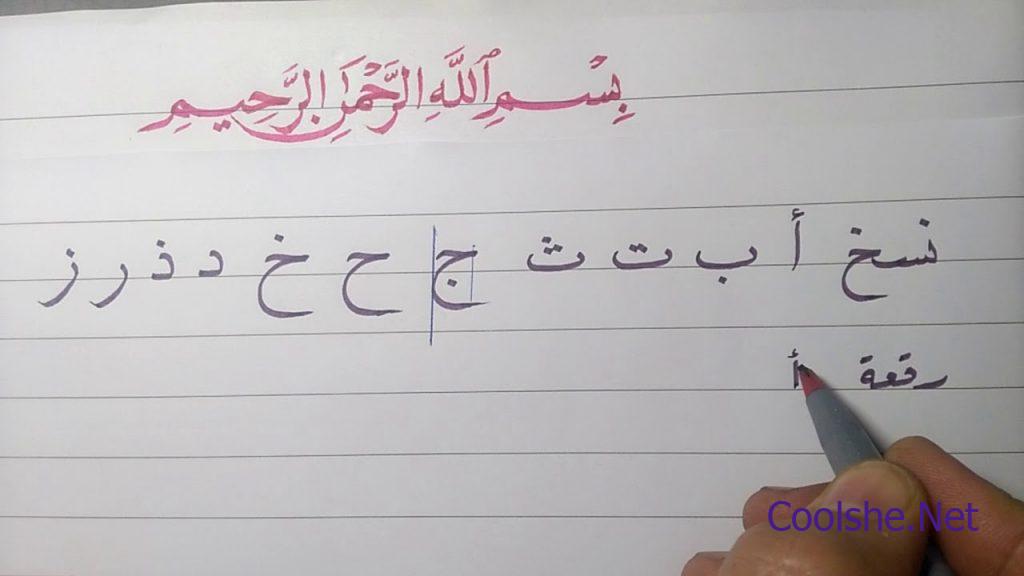 بِسْمِ ٱللَّهِ الرَّحْمَٰنِ الرَّحِيمِ
نسخ أ ب ت ث ج ح خ د ذ ر ز
رقعة أ
Coolshe.Net